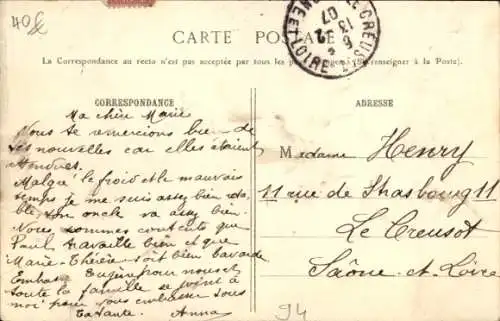 40
CARTE POSTALE
La Correspondance au recto n'est pas acceptée par tous les pays (Se renseigner à la Poste).
LE CREUSOT
6
13 12
07
NE ET LOIRE
CORRESPONDANCE
Ma chère Marie
Nous te remercions bien de
tes nouvelles car elles étaient
Malgré le froid et le mauvais
temps je me suis assez bien
ton oncle va assez bien.
Nous sommes contents que
Paul travaille bien et que
Marie-Thérèse soit bien bavarde
Embrasse Eugène pour nous et
toute la famille se joint à
moi pour vous embrasser tous
Ta tante. Anna
ADRESSE
Madame Henry
11 rue de Strasbourg 11
Le Creusot
Saône-et-Loire
94